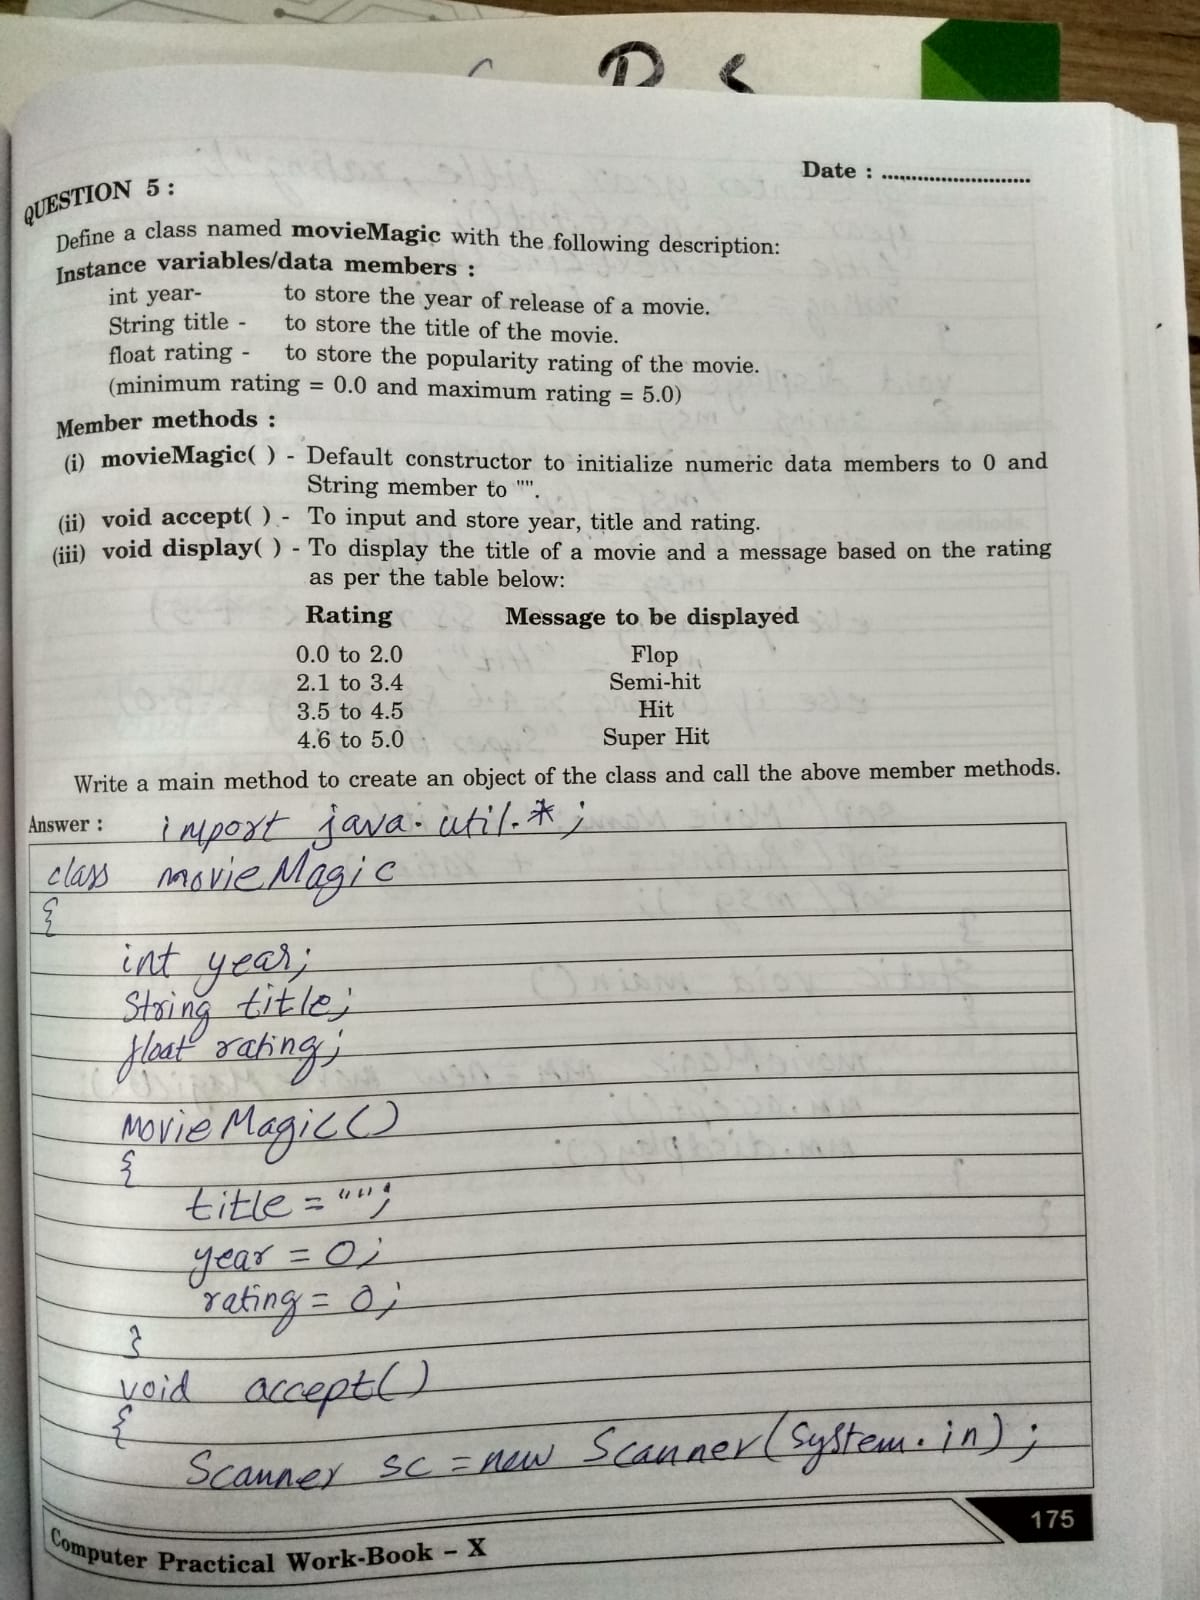 Date : ............................
QUESTION 5 :
Define a class named movieMagic with the following description:
Instance variables/data members :
int year- to store the year of release of a movie.
String title - to store the title of the movie.
float rating - to store the popularity rating of the movie.
(minimum rating = 0.0 and maximum rating = 5.0)
Member methods :
(i) movieMagic( ) - Default constructor to initialize numeric data members to 0 and
String member to "".
(ii) void accept( ) - To input and store year, title and rating.
(iii) void display( ) - To display the title of a movie and a message based on the rating
as per the table below:
Rating Message to be displayed
0.0 to 2.0 Flop
2.1 to 3.4 Semi-hit
3.5 to 4.5 Hit
4.6 to 5.0 Super Hit
Write a main method to create an object of the class and call the above member methods.
Answer : import java.util.*;
class movieMagic
{
int year;
String title;
float rating;
movieMagic()
{
title = "";
year = 0;
rating = 0;
}
void accept()
{
Scanner sc = new Scanner(System.in);
Computer Practical Work-Book – X
175